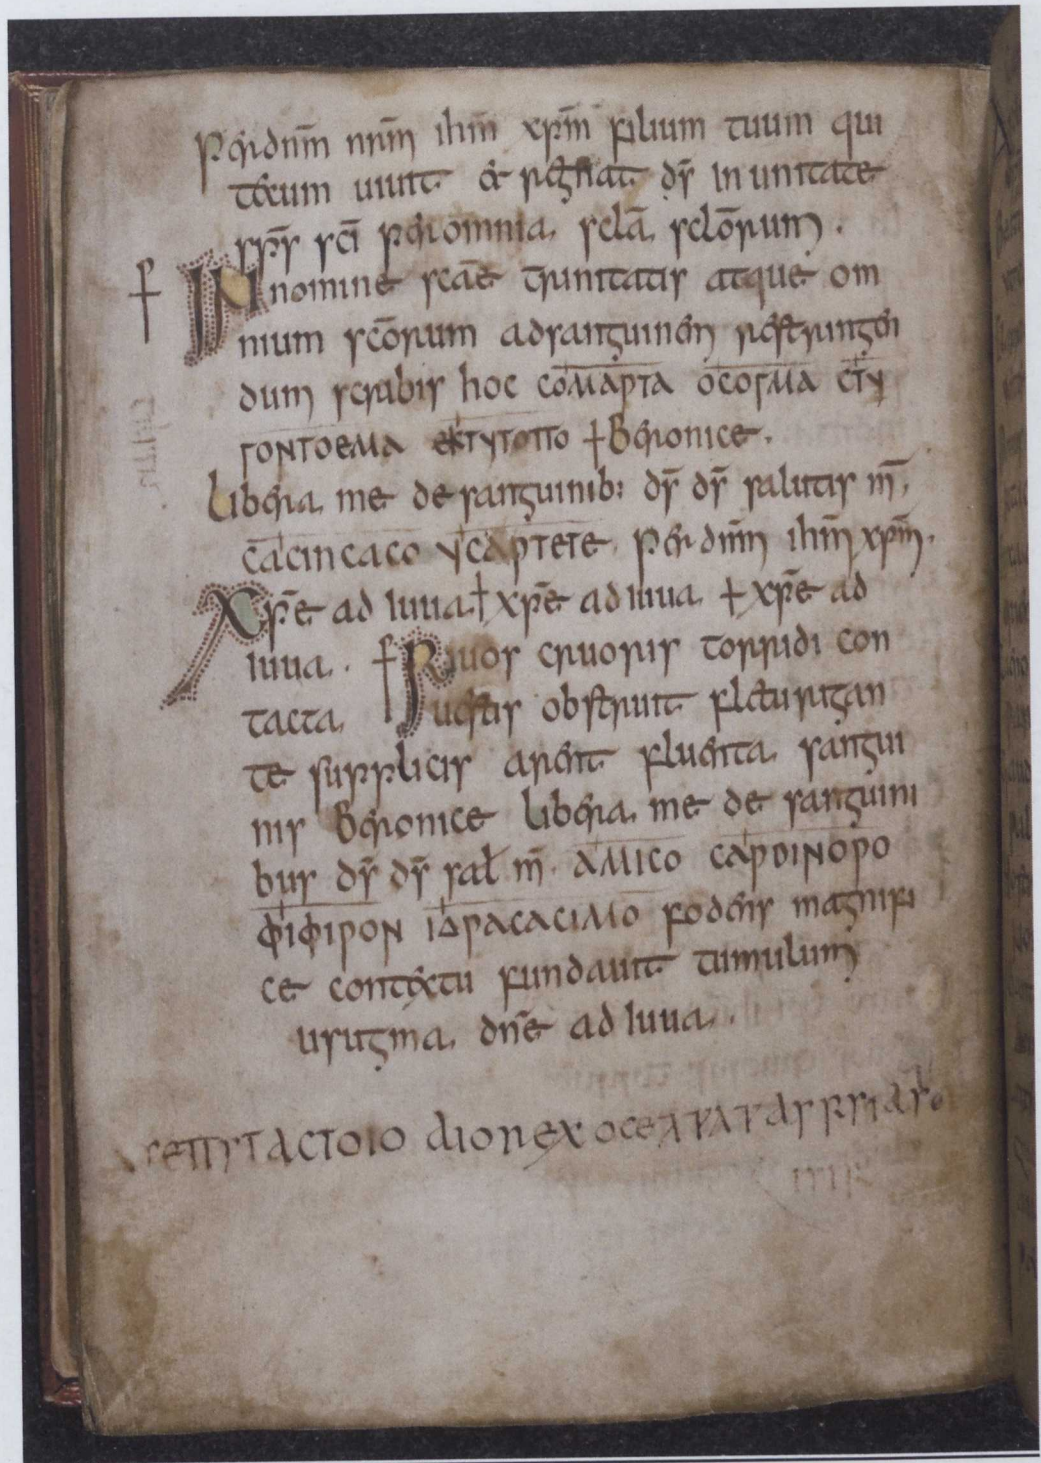 per dnm nrm ihm xpm filium tuum qui
tecum uiuit & regnat ds in unitate
sps sci per omnia scla sclorum.
+ IN nomine scae trinitatis atque om
nium scorum ad sanguinem restringen
dum scribis hoc COMAPTA OCOΓMA CTY
ΓONTOEMA EKTYTOΠO + Beronice.
Libera me de sanguinib: ds ds salutis m̄.
CACINCACO YCAPTETE per dnm ihm xpm.
Xpe adiuua + xpe adiuua + xpe ad
iuua. + Riuos cruoris torridi con
tacta uestis obstruit fletu rigan
te supplicis arent fluenta sangui
nis Beronice libera me de sanguini
bus ds ds sal m̄. AMICO CAPDINOPO
ΦIΦIPON IΔPACACIMO fodens magnifi
ce contextu fundauit tumulum
usugma. dne adiuua.